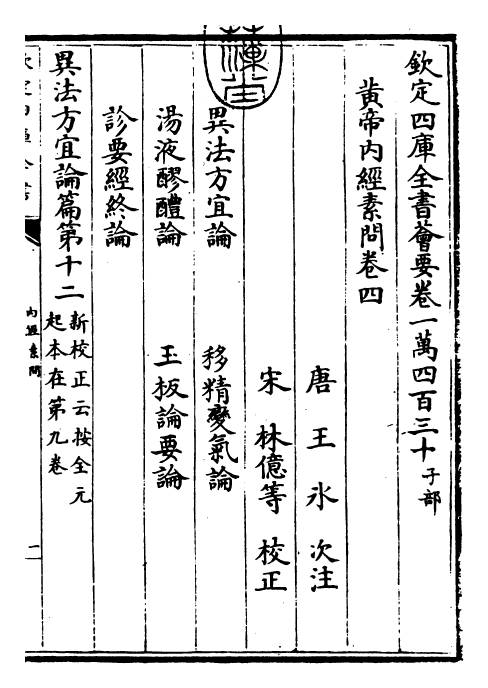 欽定四庫全書薈要卷一萬四百三十子部
黄帝内經素問卷四
唐王氷次注
宋林億等校正
異法方宜論 移精變氣論
湯液醪醴論 玉板論要論
診要經終論
異法方宜論篇第十二新校正云按全元
起本在第九卷
内經素問